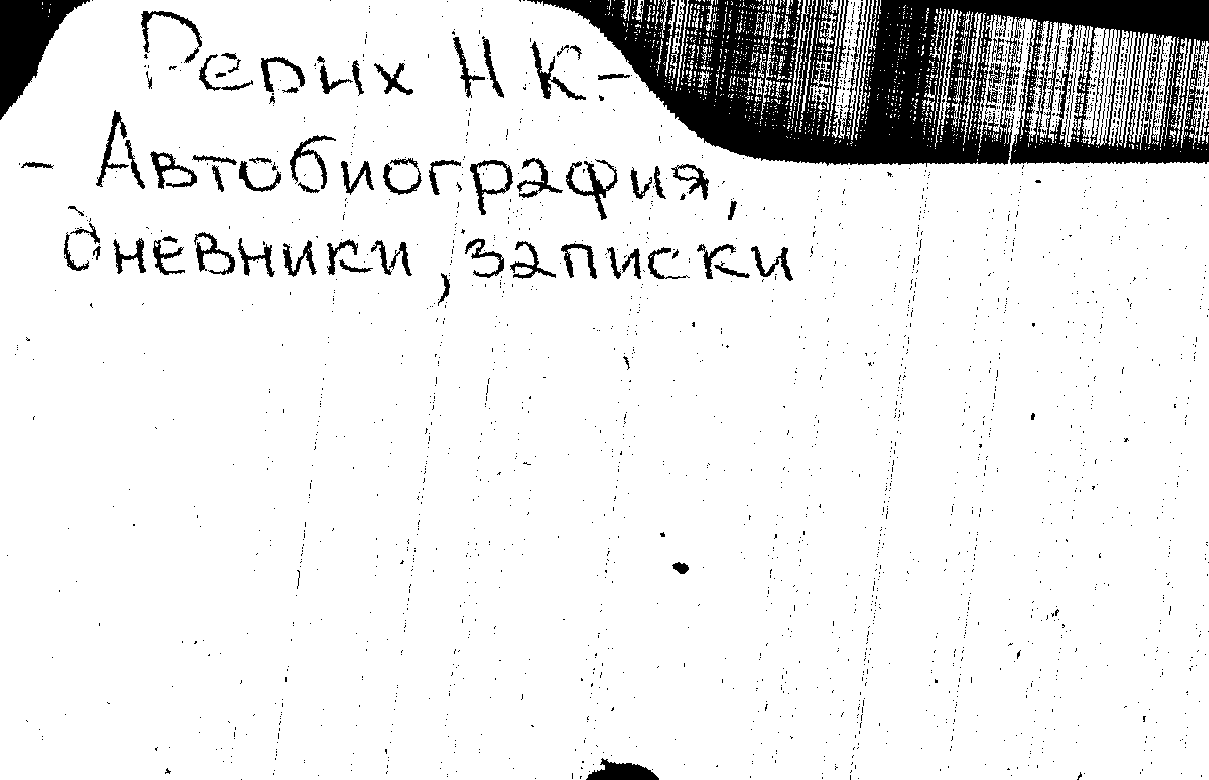 Рерих Н К. -
- Автобиография,
дневники, записки